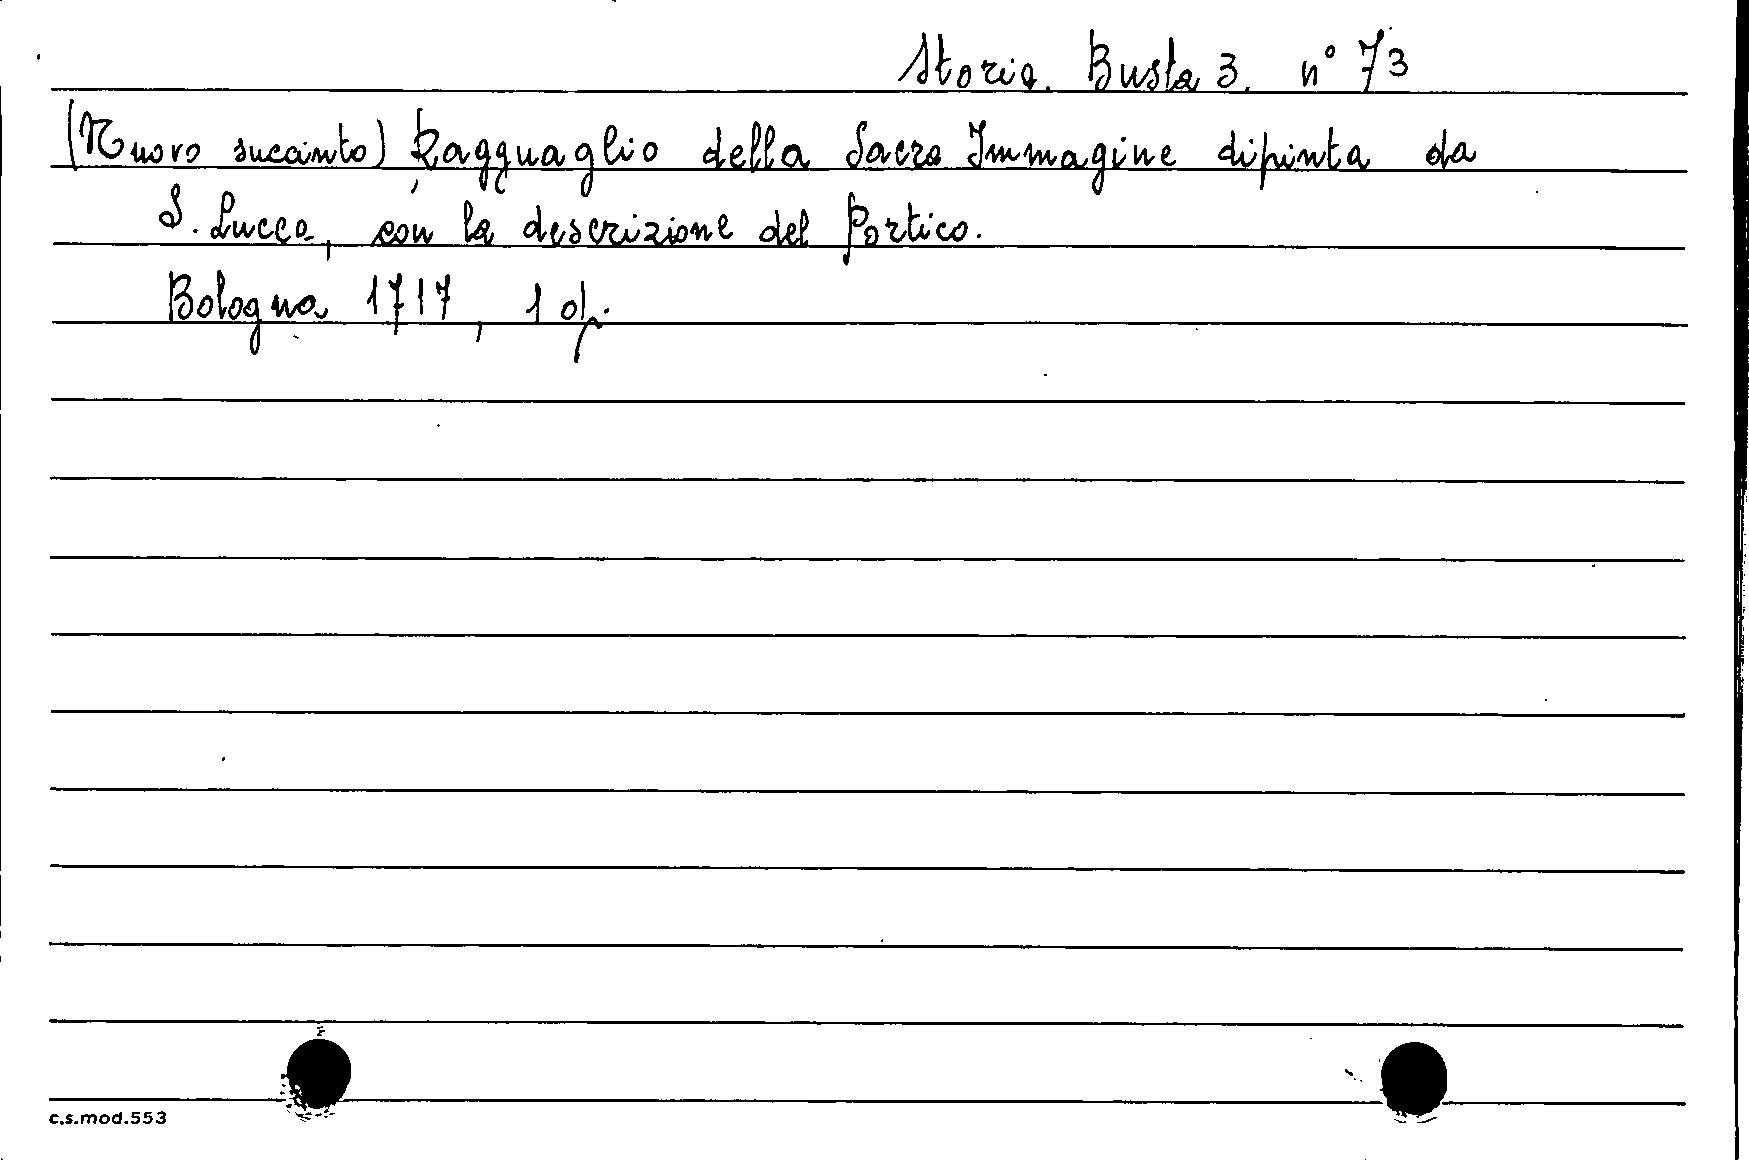 Storia. Busta 3. n° 73
(Nuovo succinto) Ragguaglio della Sacra Immagine dipinta da
S. Lucca, con la descrizione del Portico.
Bologna 1717, 1 op.
c.s.mod.553